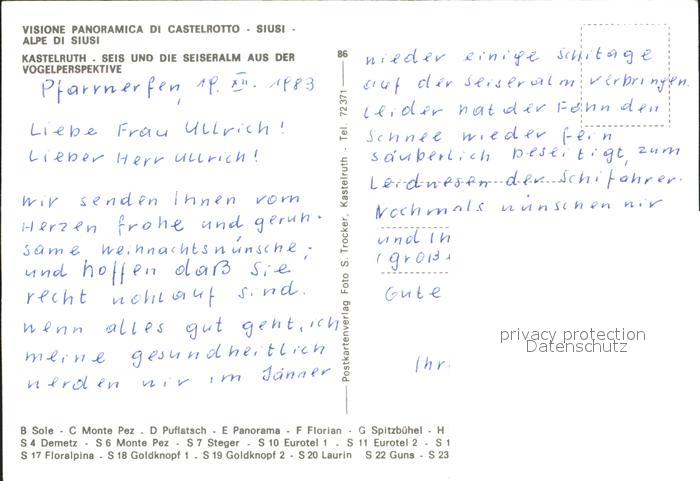 VISIONE PANORAMICA DI CASTELROTTO - SIUSI -
ALPE DI SIUSI
KASTELRUTH - SEIS UND DIE SEISERALM AUS DER
VOGELPERSPEKTIVE
Pfarrwerfen, 19. XII. 1983
Liebe Frau Ullrich!
Lieber Herr Ullrich!
wir senden Ihnen vom
Herzen frohe und geruh-
same weihnachtswünsche;
und hoffen daß sie
recht wohlauf sind.
wenn alles gut geht, ich
meine gesundheitlich
werden wir im Jänner
86
Postkartenverlag Foto S. Trocker, Kastelruth - Tel. 72371
wieder einige schitage
auf der seiseralm verbringen.
Leider hat der Föhn den
schnee wieder fein
säuberlich beseitigt, zum
Leidwesen der Schifahrer.
Nochmals wünschen wir
und Ih
(groß
Gute
Ihr
privacy protection
Datenschutz
B Sole - C Monte Pez - D Puflatsch - E Panorama - F Florian - G Spitzbühel - H
S 4 Demetz - S 6 Monte Pez - S 7 Steger - S 10 Eurotel 1 - S 11 Eurotel 2 - S 1
S 17 Floralpina - S 18 Goldknopf 1 - S 19 Goldknopf 2 - S 20 Laurin S 22 Guns - S 23